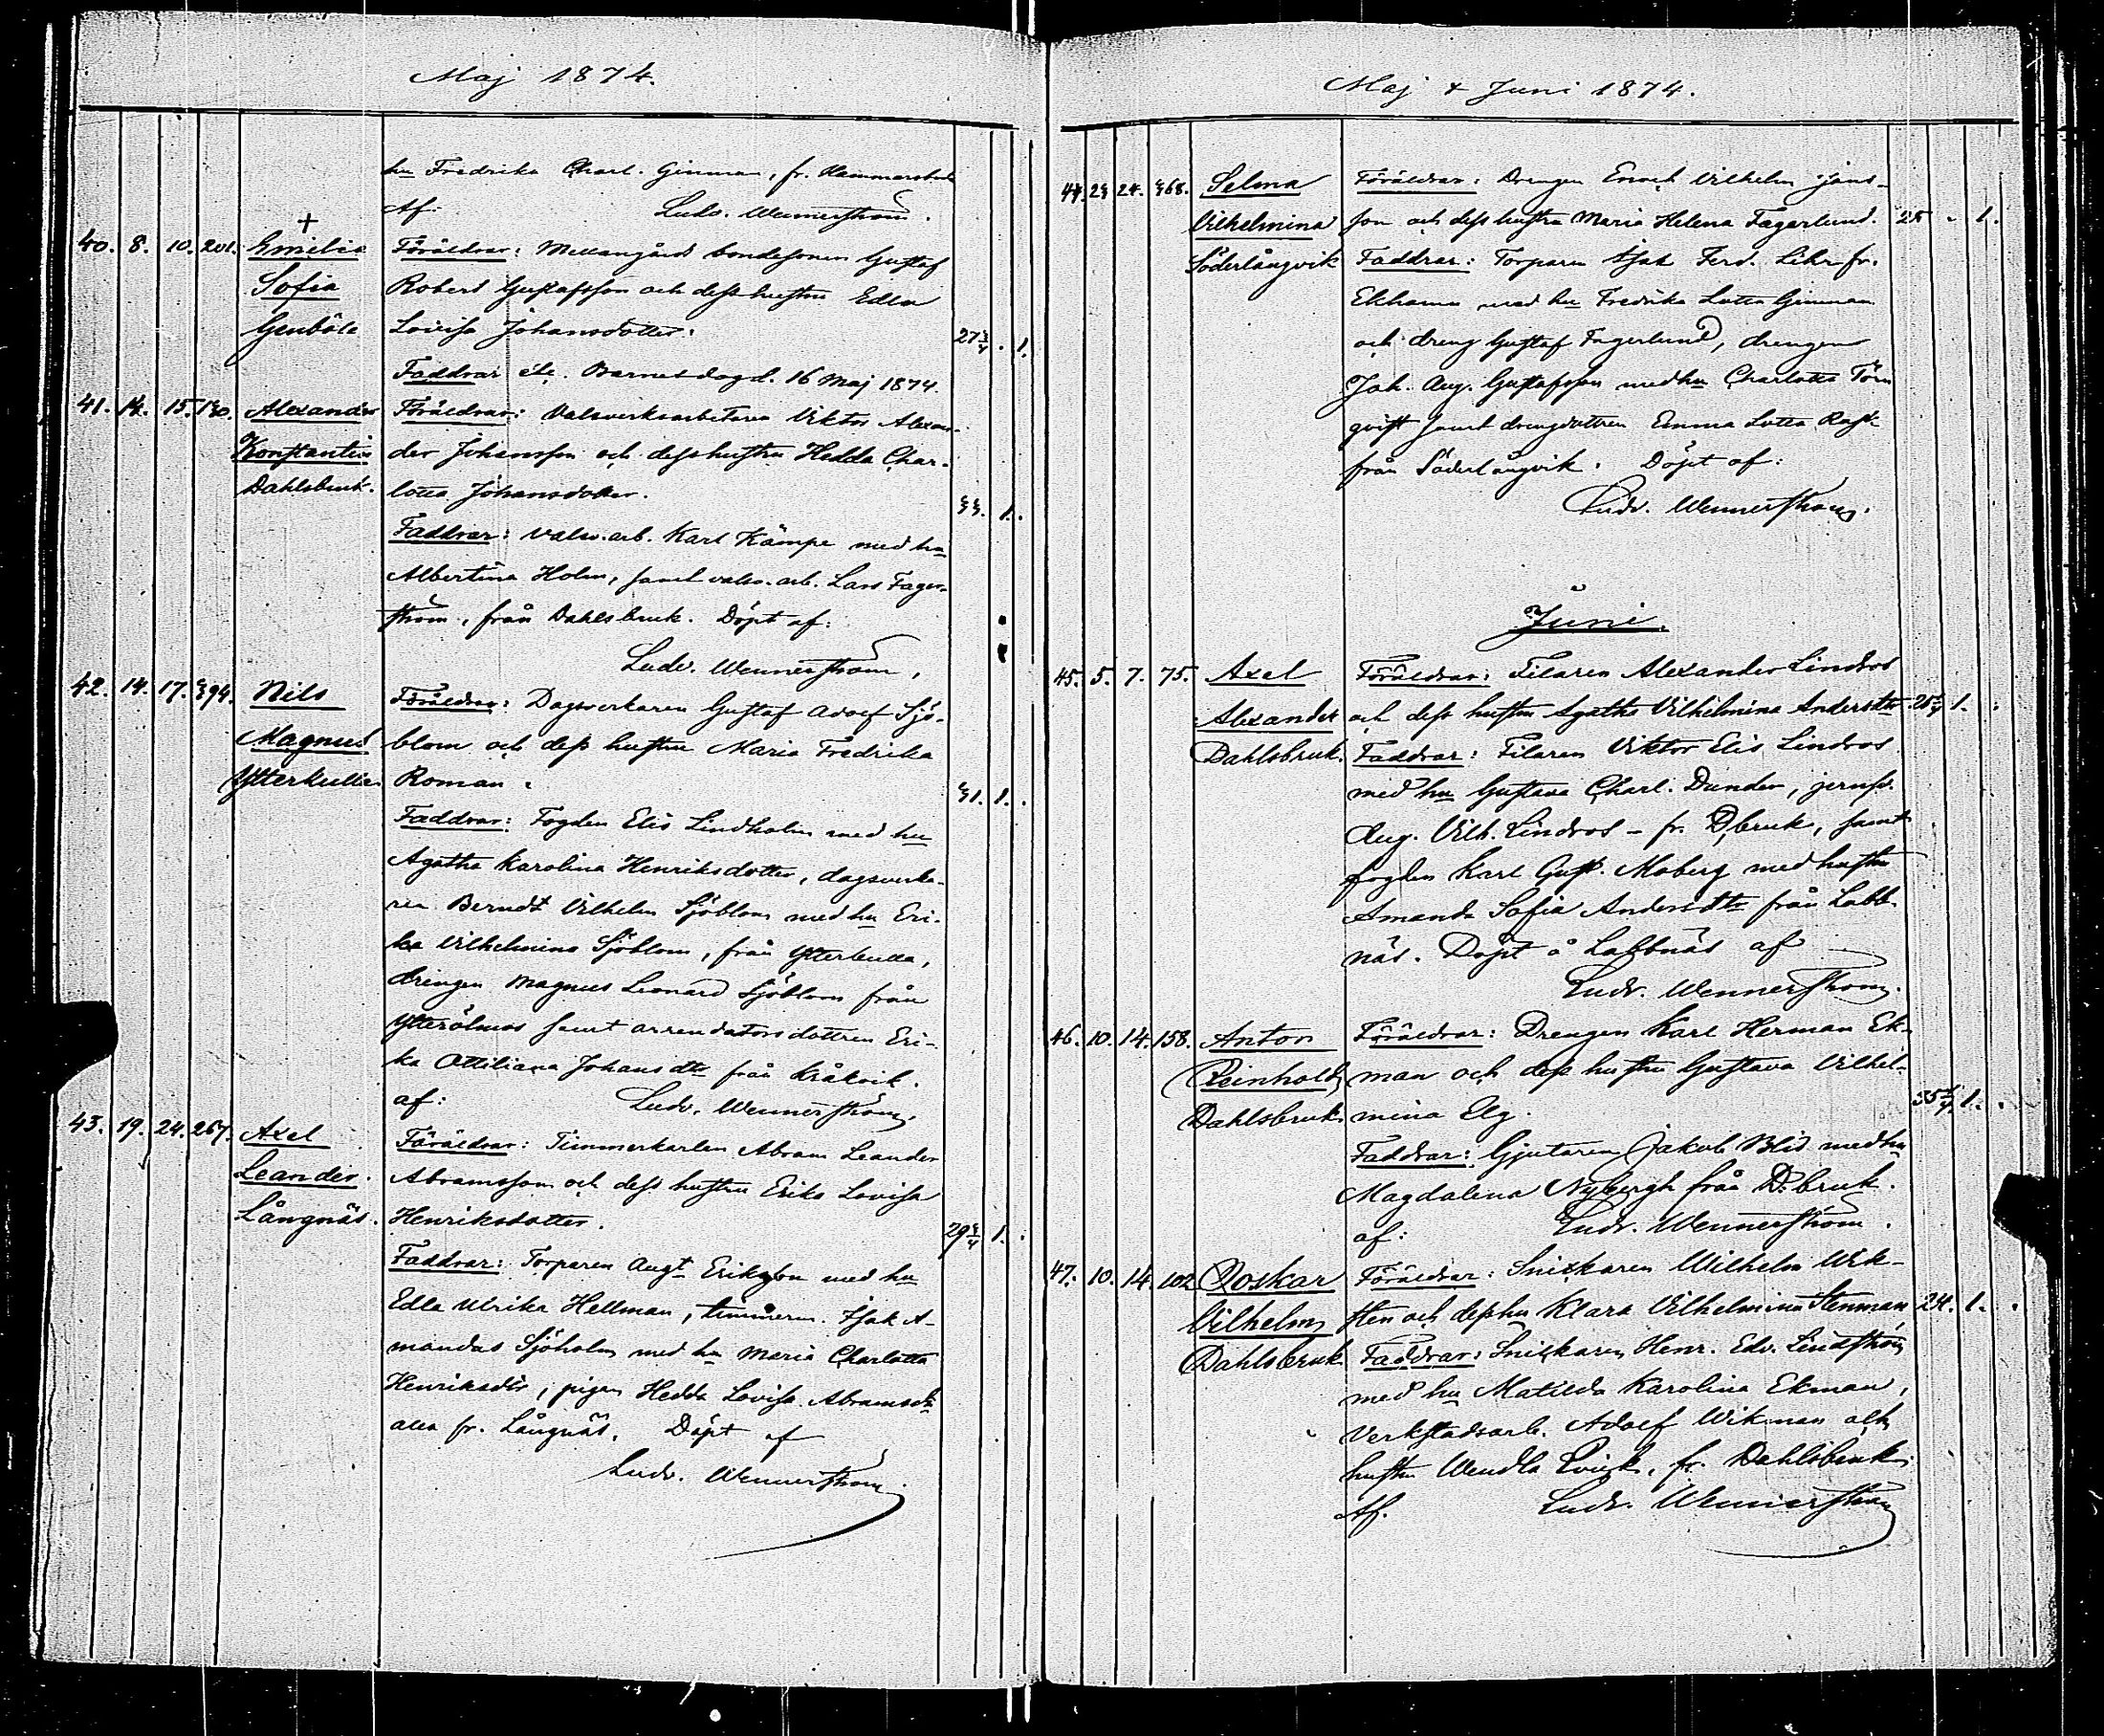 Maj 1874.
hu Fredrika Charl. Ginman, fr. Hammarsboda
Af. Ludv. Wennerström.
+
40. 8. 10. 201. Emelie Föräldrar: Mellangårds bondesonen Gustaf
Sofia Robert Gustafsson och dess hustru Edla
Genböle Lovisa Johansdotter. 27 3/4 . 1.
Faddrar etc. Barnet dog d. 16 Maj 1874.
41. 14. 15. 130. Alexander Föräldrar: Valsverksarbetaren Viktor Alexan-
Konstantin der Johansson och dess hustru Hedda Char-
Dahlsbruk. lotta Johansdotter. 33. 1.
Faddrar: valsv.arb. Karl Kämpe med hu
Albertina Holm, samt valsv. arb. Lars Fager-
ström, från Dahlsbruk. Döpt af:
Ludv. Wennerström,
42. 14. 17. 394. Nils Föräldrar: Dagsverkaren Gustaf Adolf Sjö-
Magnus blom och dess hustru Maria Fredrika
Ytterkulla Roman. 31. 1.
Faddrar: Fogden Elis Lindholm med hu
Agatha Karolina Henriksdotter, dagsverka-
ren Berndt Vilhelm Sjöblom med hu Eri-
ka Vilhelmina Sjöblom, från Ytterkulla,
drengen Magnus Leonard Sjöblom från
Ytterölmos samt arrendatorsdottren Eri-
ka Ottiliana Johansdtr från Kråkvik.
af: Ludv. Wennerström,
43. 19. 24. 267. Axel Föräldrar: Timmerkarlen Abram Leander
Leander. Abramsson och dess hustru Erika Lovisa
Långnäs. Henriksdotter. 29 1.
Faddrar: Torparen Augt Eriksson med hu
Edla Ulrika Hellman, timmerm. Isak A-
mandus Sjöholm med hu Maria Charlotta
Henriksdtr, pigan Hedda Lovisa Abramsdtr
alla fr. Långnäs. Döpt af
Ludv. Wennerström.
Maj & Juni 1874.
44. 23 24. 368. Selma Föräldrar: Drengen Enoch Vilhelm Jans-
Vilhelmina son och dess hustru Maria Helena Fagerlund. 25 . 1.
Söderlångvik Faddrar: Torparen Isak Ferd. Lihr fr.
Ekhamn med hu Fredrika Lotta Ginman
och dreng Gustaf Fagerlund, drengen
Joh. Aug. Gustafsson med hu Charlotta Törn
qvist samt drengdottren Emma Lotta Rask
från Söderlångvik. Döpt af:
Ludv. Wennerström.
Juni.
45. 5. 7. 75. Axel Föräldrar: Filaren Alexander Lindros
Alexander och dess hustru Agatha Vilhelmina Andersdtr 1.
Dahlsbruk. Faddrar: Filaren Viktor Elis Lindros
med hu Gustava Charl. Dunder, jernsv.
Aug. Vilh. Lindros – fr. D,bruk, samt
fogden Karl Gust. Moberg med hustru
Amanda Sofia Andersdtr från Labb-
näs. Döpt å Labbnäs af
Ludv. Wennerström.
46. 10. 14. 158. Anton Föräldrar: Drengen Karl Herman Ek-
Reinhold man och dess hustru Gustava Vilhel-
Dahlsbruk mina Elg. 1.
Faddrar: Gjutaren Jakob Blid med hu
Magdalena Nybergh från D.bruk.
af: Ludv. Wennerström.
47. 10. 14. 102 Ooskar Föräldrar: Snickaren Wilhelm Wik-
Vilhelm sten och dess hu Klara Vilhelmina Stenman 24. 1.
Dahlsbruk. Faddrar: Snickaren Henr. Edv. Lindström
med hu Matilda Karolina Ekman,
Verkstadsarb. Adolf Wikman och
hustru Wendla Qvick, fr. Dahlsbruk
Af. Ludv. Wennerström